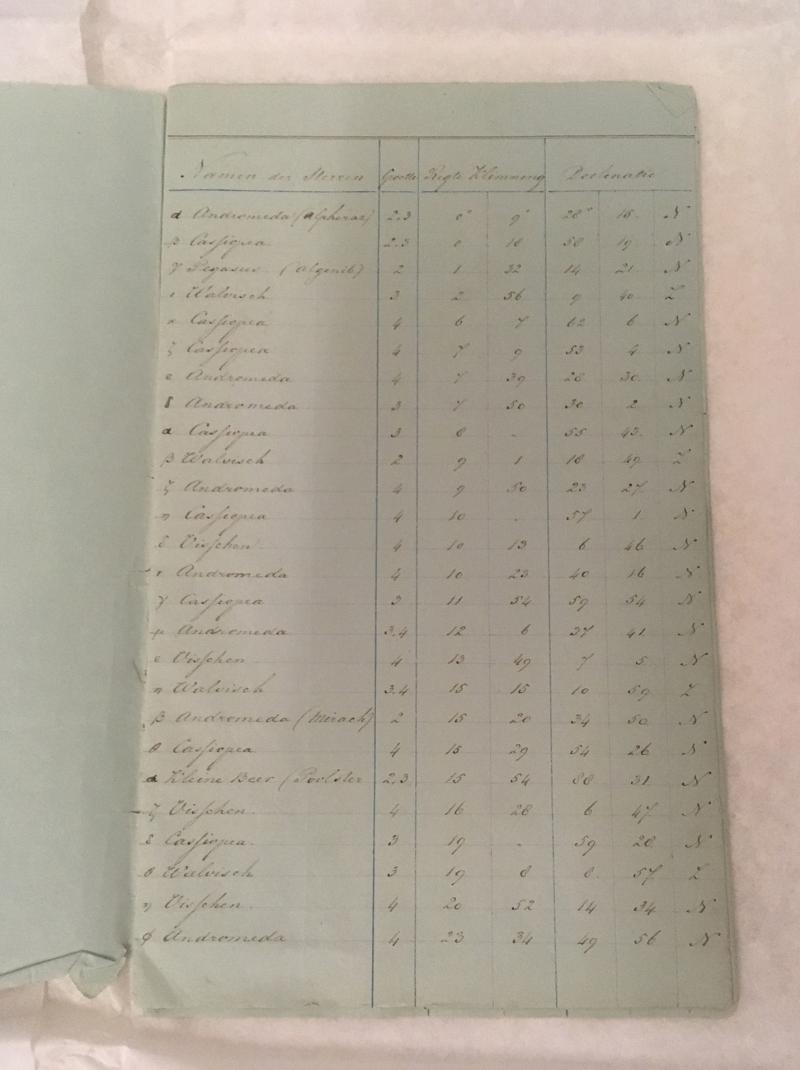 Namen der Sterren Grootte Regte Klimming Declinatie
α Andromeda (Alpheraz) 2.3 0° 9' 28° 15. N
β Cassiopea 2.3 0 18 58 19 N
γ Pegasus. (Algenib) 2 1 32 14 21 N
ι Walvisch 3 2 56 9 40 Z
κ Cassiopea 4 6 7 62 6 N
ζ Cassiopea 4 7 9 53 4 N
ε Andromeda 4 7 39 28 30 N
δ Andromeda 3 7 50 30 2 N
α Cassiopea 3 8 - 55 43. N
β Walvisch 2 9 1 18 49 Z
ζ Andromeda 4 9 50 23 27 N
η Cassiopea 4 10 . 57 1 N
δ Visschen 4 10 13 6 46 N
ν Andromeda 4 10 23 40 16 N
γ Cassiopea 3 11 54 59 54 N
μ Andromeda 3.4 12 6 37 41 N
ε Visschen 4 13 49 7 5 N
η Walvisch 3.4 15 15 10 59 Z
β Andromeda (Mirach) 2 15 20 34 50 N
θ Cassiopea 4 15 29 54 26 N
α Kleine Beer (Poolster 2.3 15 54 88 31 N
ζ Visschen. 4 16 28 6 47 N
δ Cassiopea. 3 19 - 59 28 N
θ Walvisch 3 19 8 8. 57 Z
η Visschen. 4 20 52 14 34 N
φ Andromeda 4 23 34 49 56 N